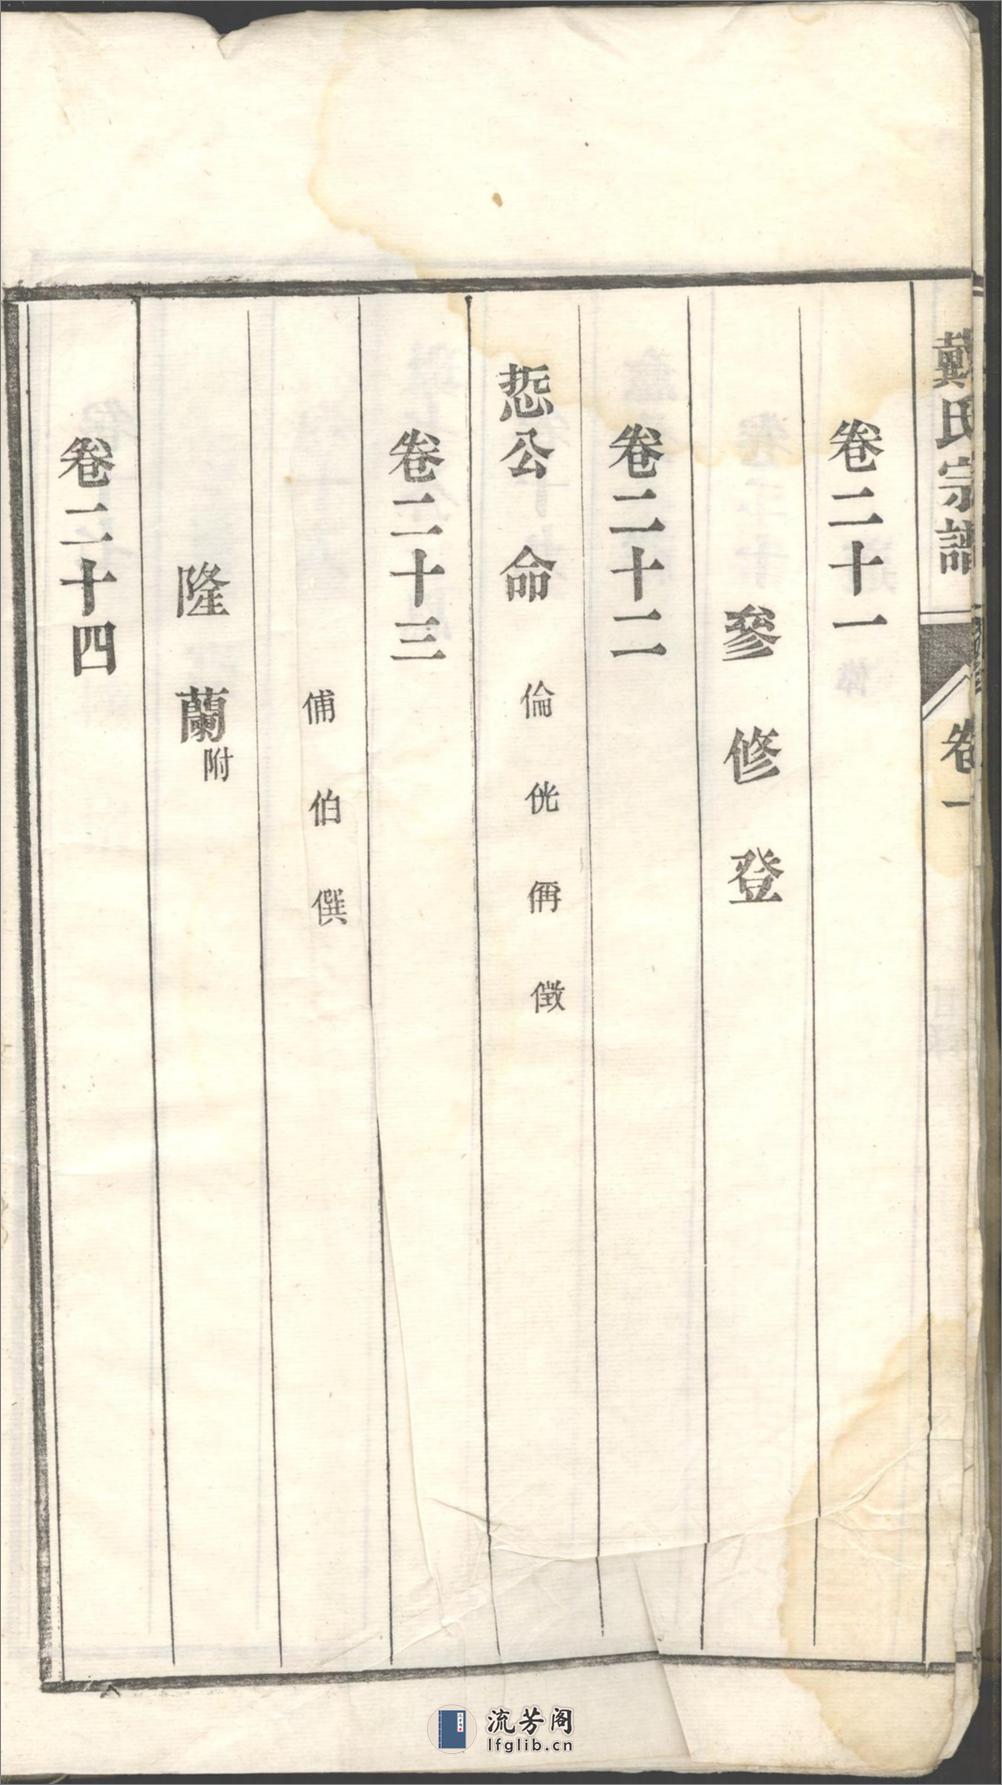 戴氏宗譜
卷一
卷二十一
參修登
卷二十二
惁公 命 倫 侊 偁 儆
卷二十三
俌 伯 僎
隆蘭附
卷二十四
流芳阁
lfglib.cn